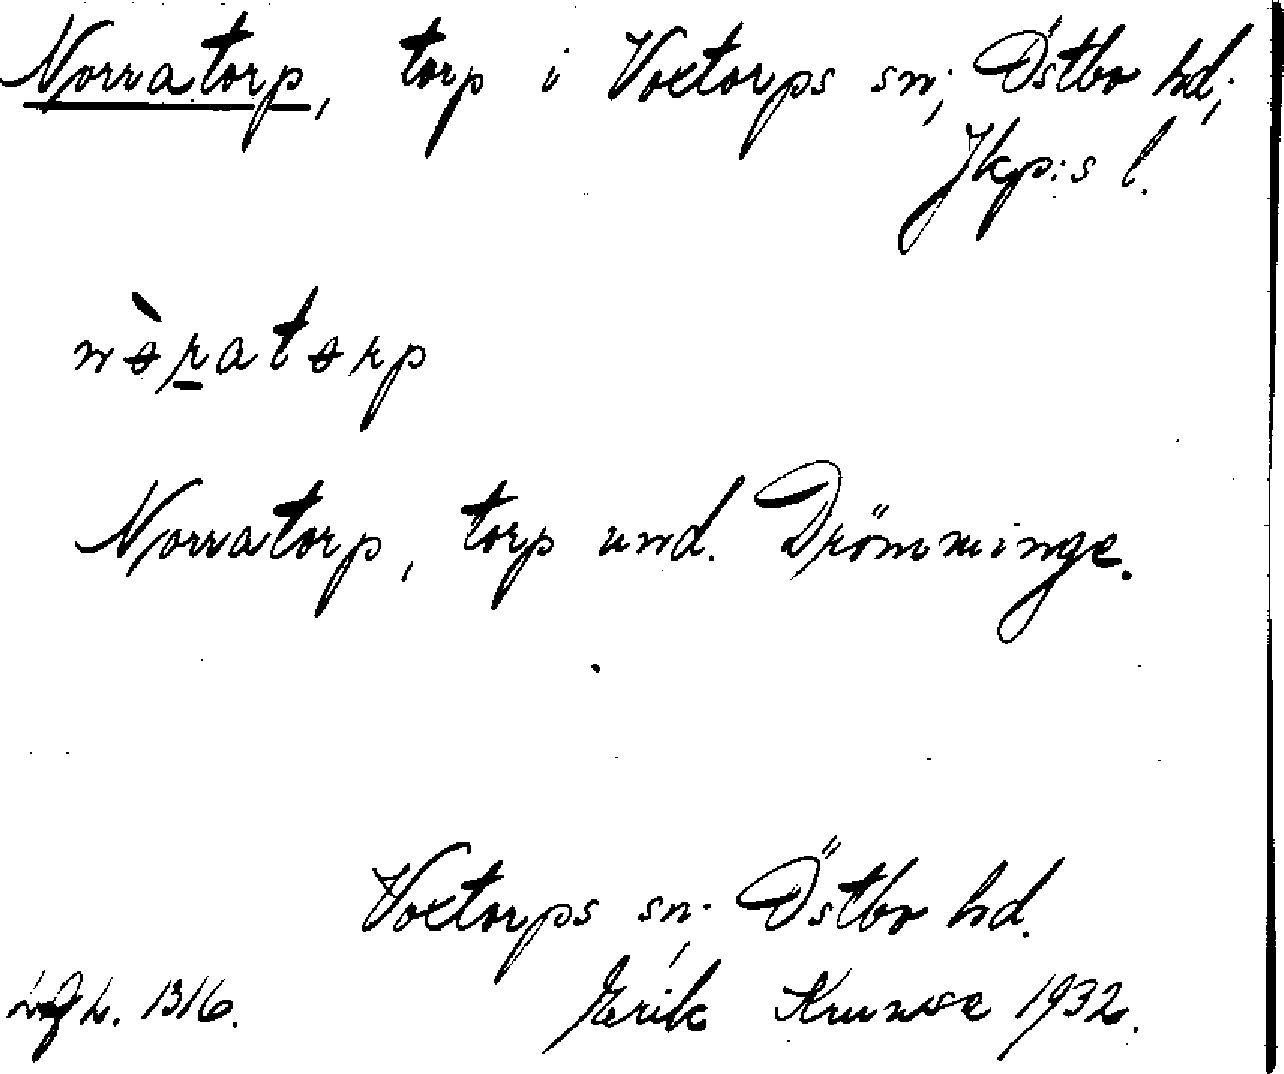 Norratorp, torp i Voxtorps sn; Östbo hd;
Jkp:s l.
nɵ̀ratɵrp
Norratorp, torp und. Drömminge.
Voxtorps sn; Östbo hd.
1316. Erik 1932.